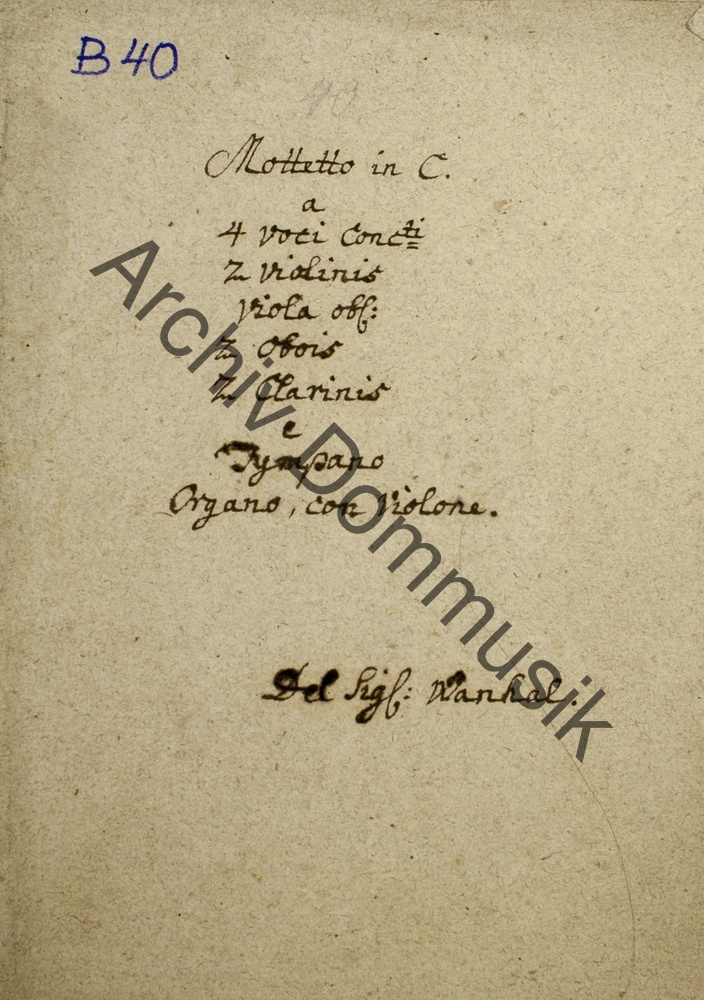 B 40
Mottetto in C.
a
4 voci Concti
2 Violinis
Viola obl:
2 Obois
2 Clarinis
e
Tympano
Organo, con Violone.
Del Sigl: Wanhal.
Archiv Dommusik